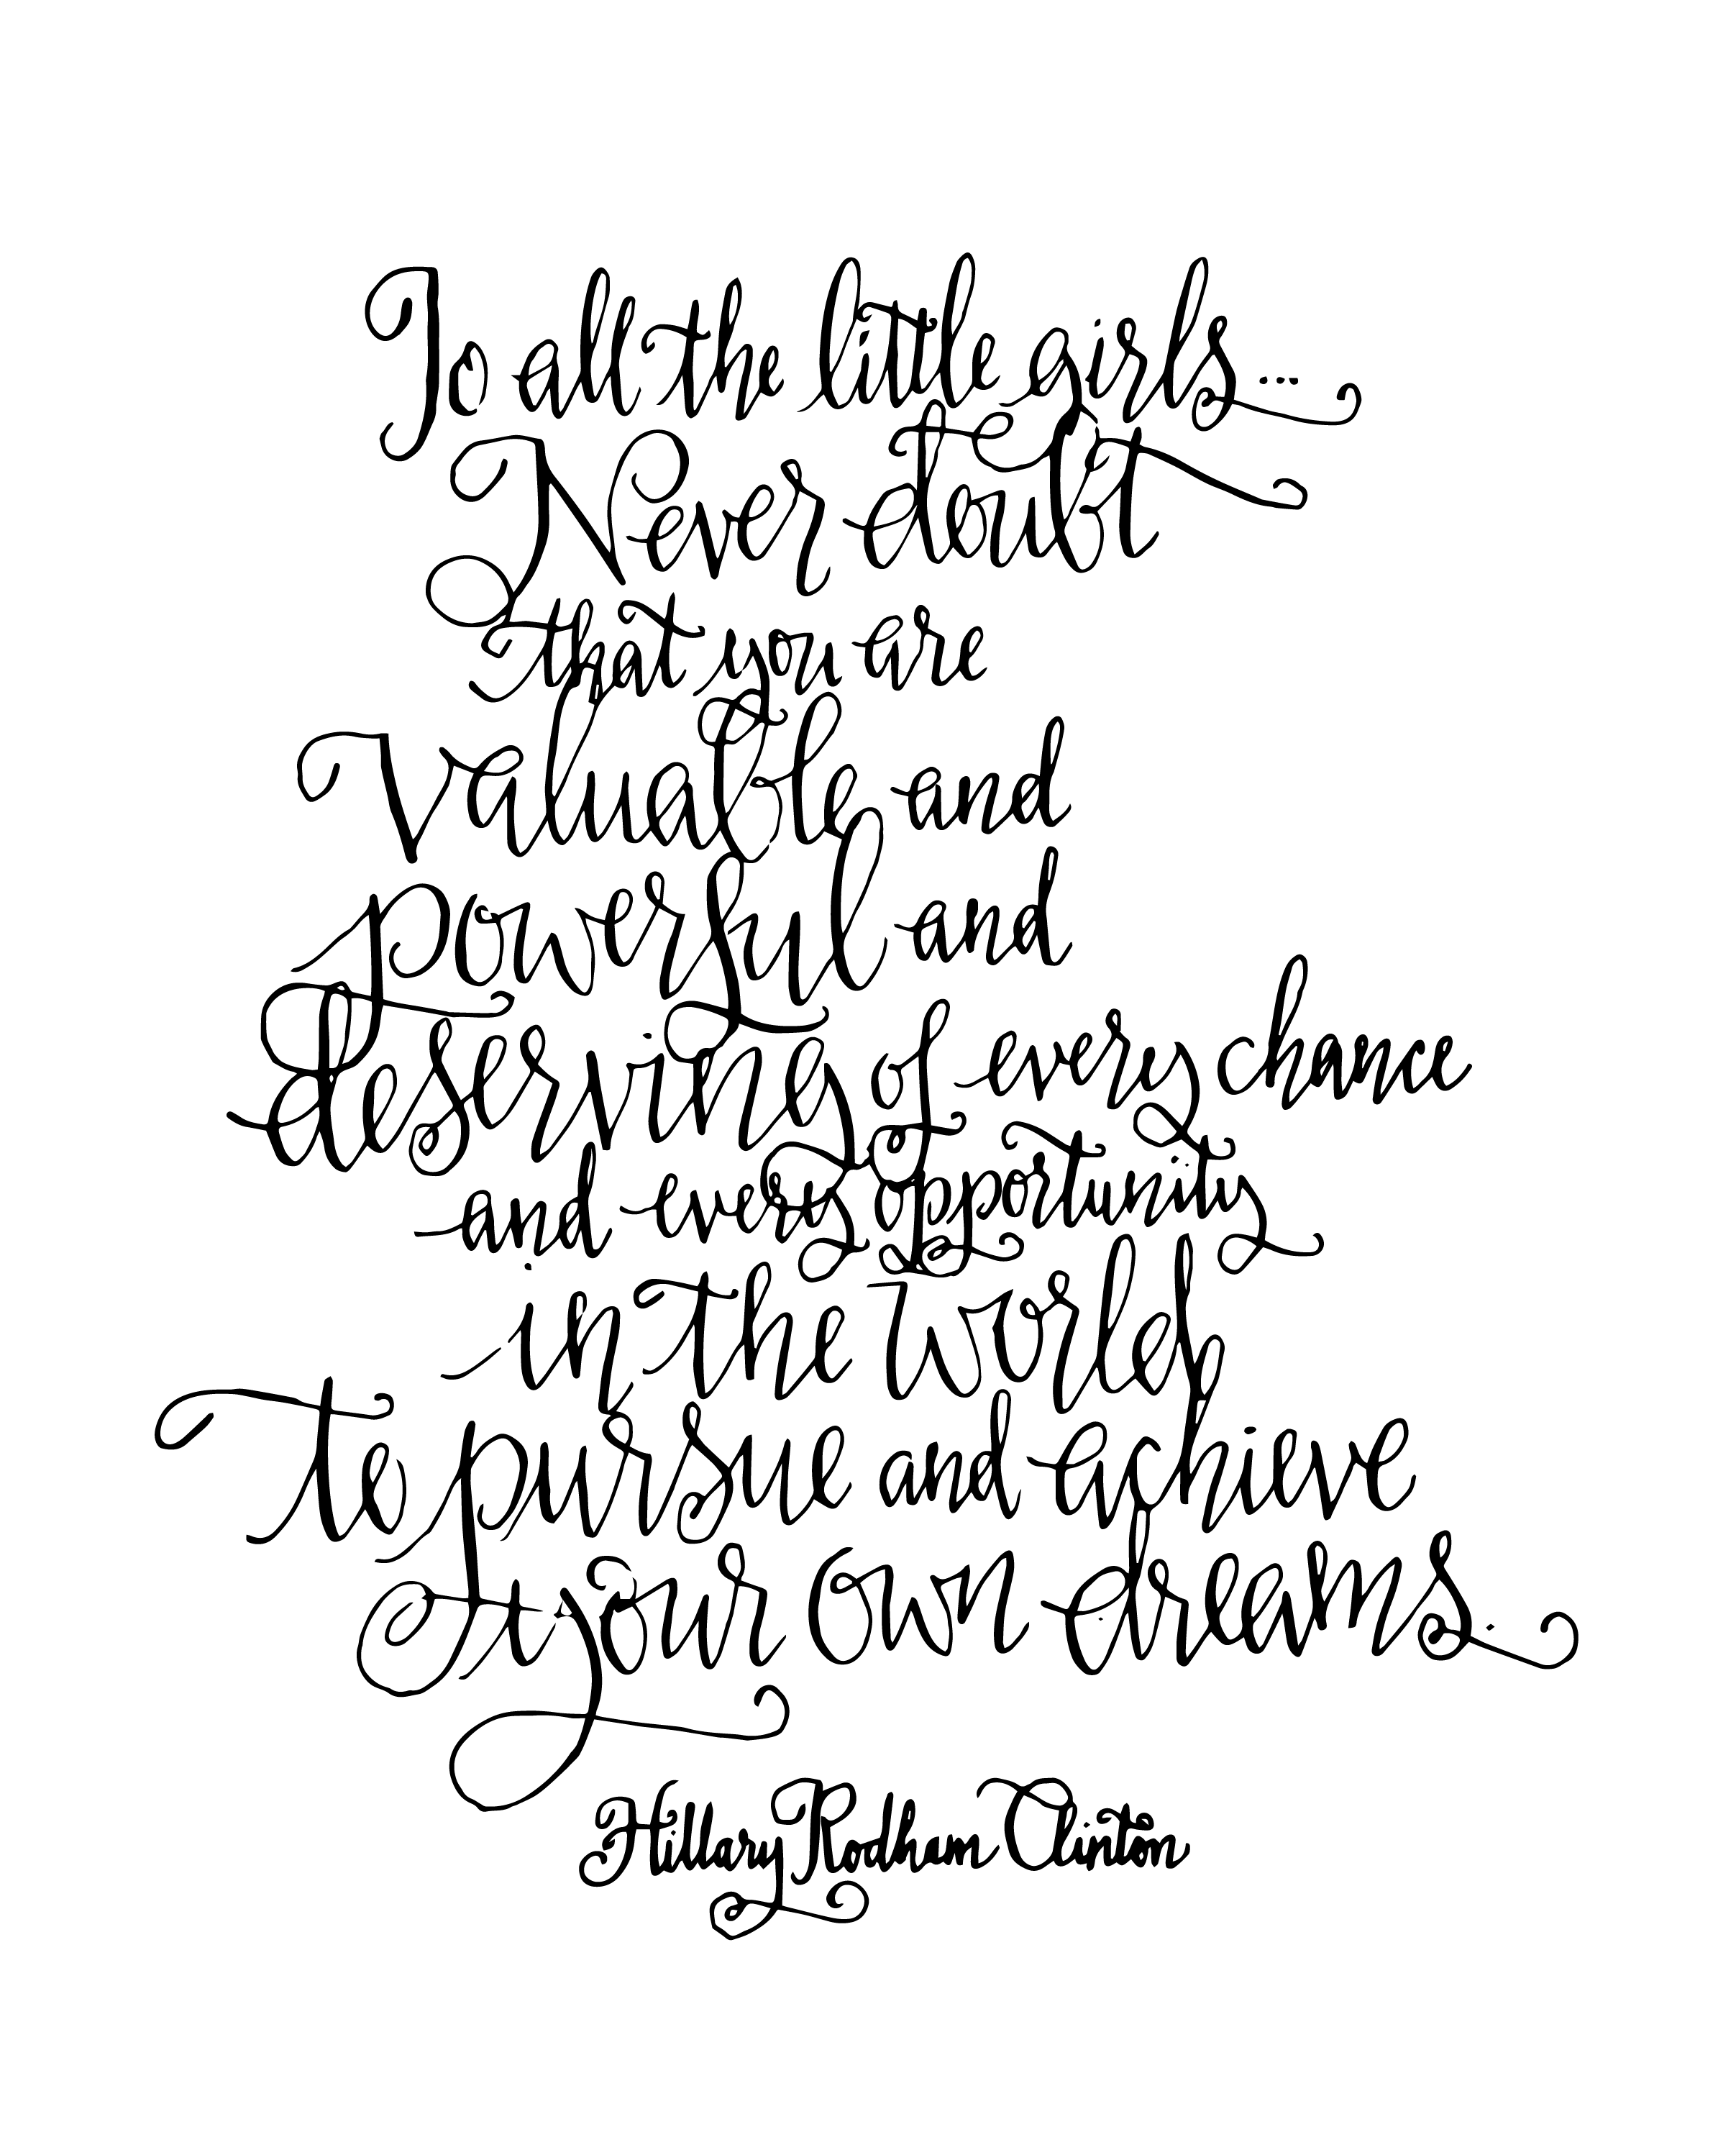 To all the little girls...
Never doubt
that you are
Valuable and
Powerful and
deserving of every chance
and every opportunity
in the world
to pursue and achieve
your own dreams.
Hillary Rodham Clinton